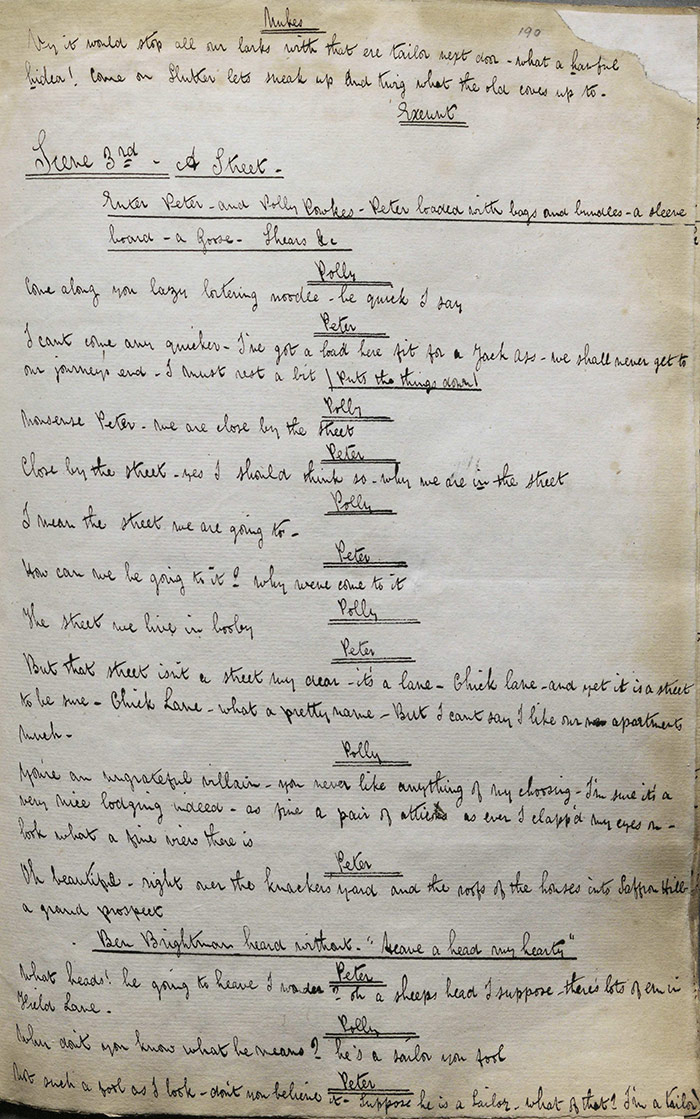 190
Nukes
Vy it would stop all our larks with that ere tailor next door - what a hawful
hidea! Come on Slutker lets sneak up and twig what the old coves up to -
Exeunt
Scene 3rd - A Street -
Enter Peter - and Polly Powkes - Peter loaded with bags and bundles - a sleeve
board - a Goose - Shears &c
Polly
Come along you lazy loitering noodle - be quick I say
Peter
I cant come any quicker - I've got a load here fit for a Jack Ass - we shall never get to
our journeys end - I must rest a bit (Puts the things down)
Polly
Nonsense Peter - we are close by the street
Peter
Close by the street - yes I should think so - why we are in the street
Polly
I mean the street we are going to -
Peter
How can we be going to it? why weve come to it
Polly
The street we live in booby
Peter
But that street isn't a street my dear - it's a lane - Chick lane - and yet it is a street
to be sure - Chick Lane - what a pretty name - But I cant say I like our apartments
much -
Polly
You're an ungrateful villain - you never like anything of my choosing - I'm sure it's a
very nice lodging indeed - as fine a pair of attics as ever I clapp'd my eyes on -
look what a fine view there is
Peter
Oh beautiful - right over the knackers yard and the roofs of the houses into Saffron Hill -
a grand prospect
Ben Brightman heard without - "Heave a head my hearty"
Peter
What heads! he going to heave I wonder? oh a sheeps head I suppose - there's lots of em in
Field Lane -
Polly
Why don't you know what he means? he's a sailor you fool
Peter
Not such a fool as I look - don't you believe it - Suppose he is a Sailor - what of that? I'm a tailor